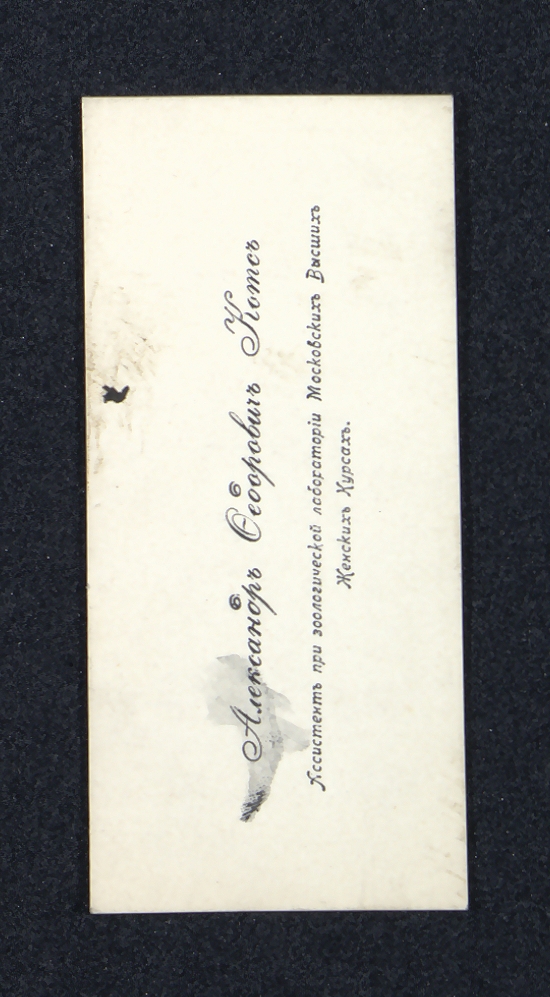 Александръ Ѳедоровичъ Котсъ
Ассистентъ при зоологической лабораторіи Московскихъ Высшихъ
Женскихъ Курсахъ.